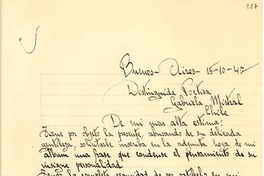 187
Buenos-Aires 15-10-47
Distinguida Poetisa
Gabriela Mistral
Chile
De mi mas alta estima:
Trae por objeto la presente, abusando de su delicada
gentileza, solicitarle inscriba en la adjunta hoja de mi
album una frase que condense el pensamiento de su
insigne personalidad.
la completa seguridad de ser en su